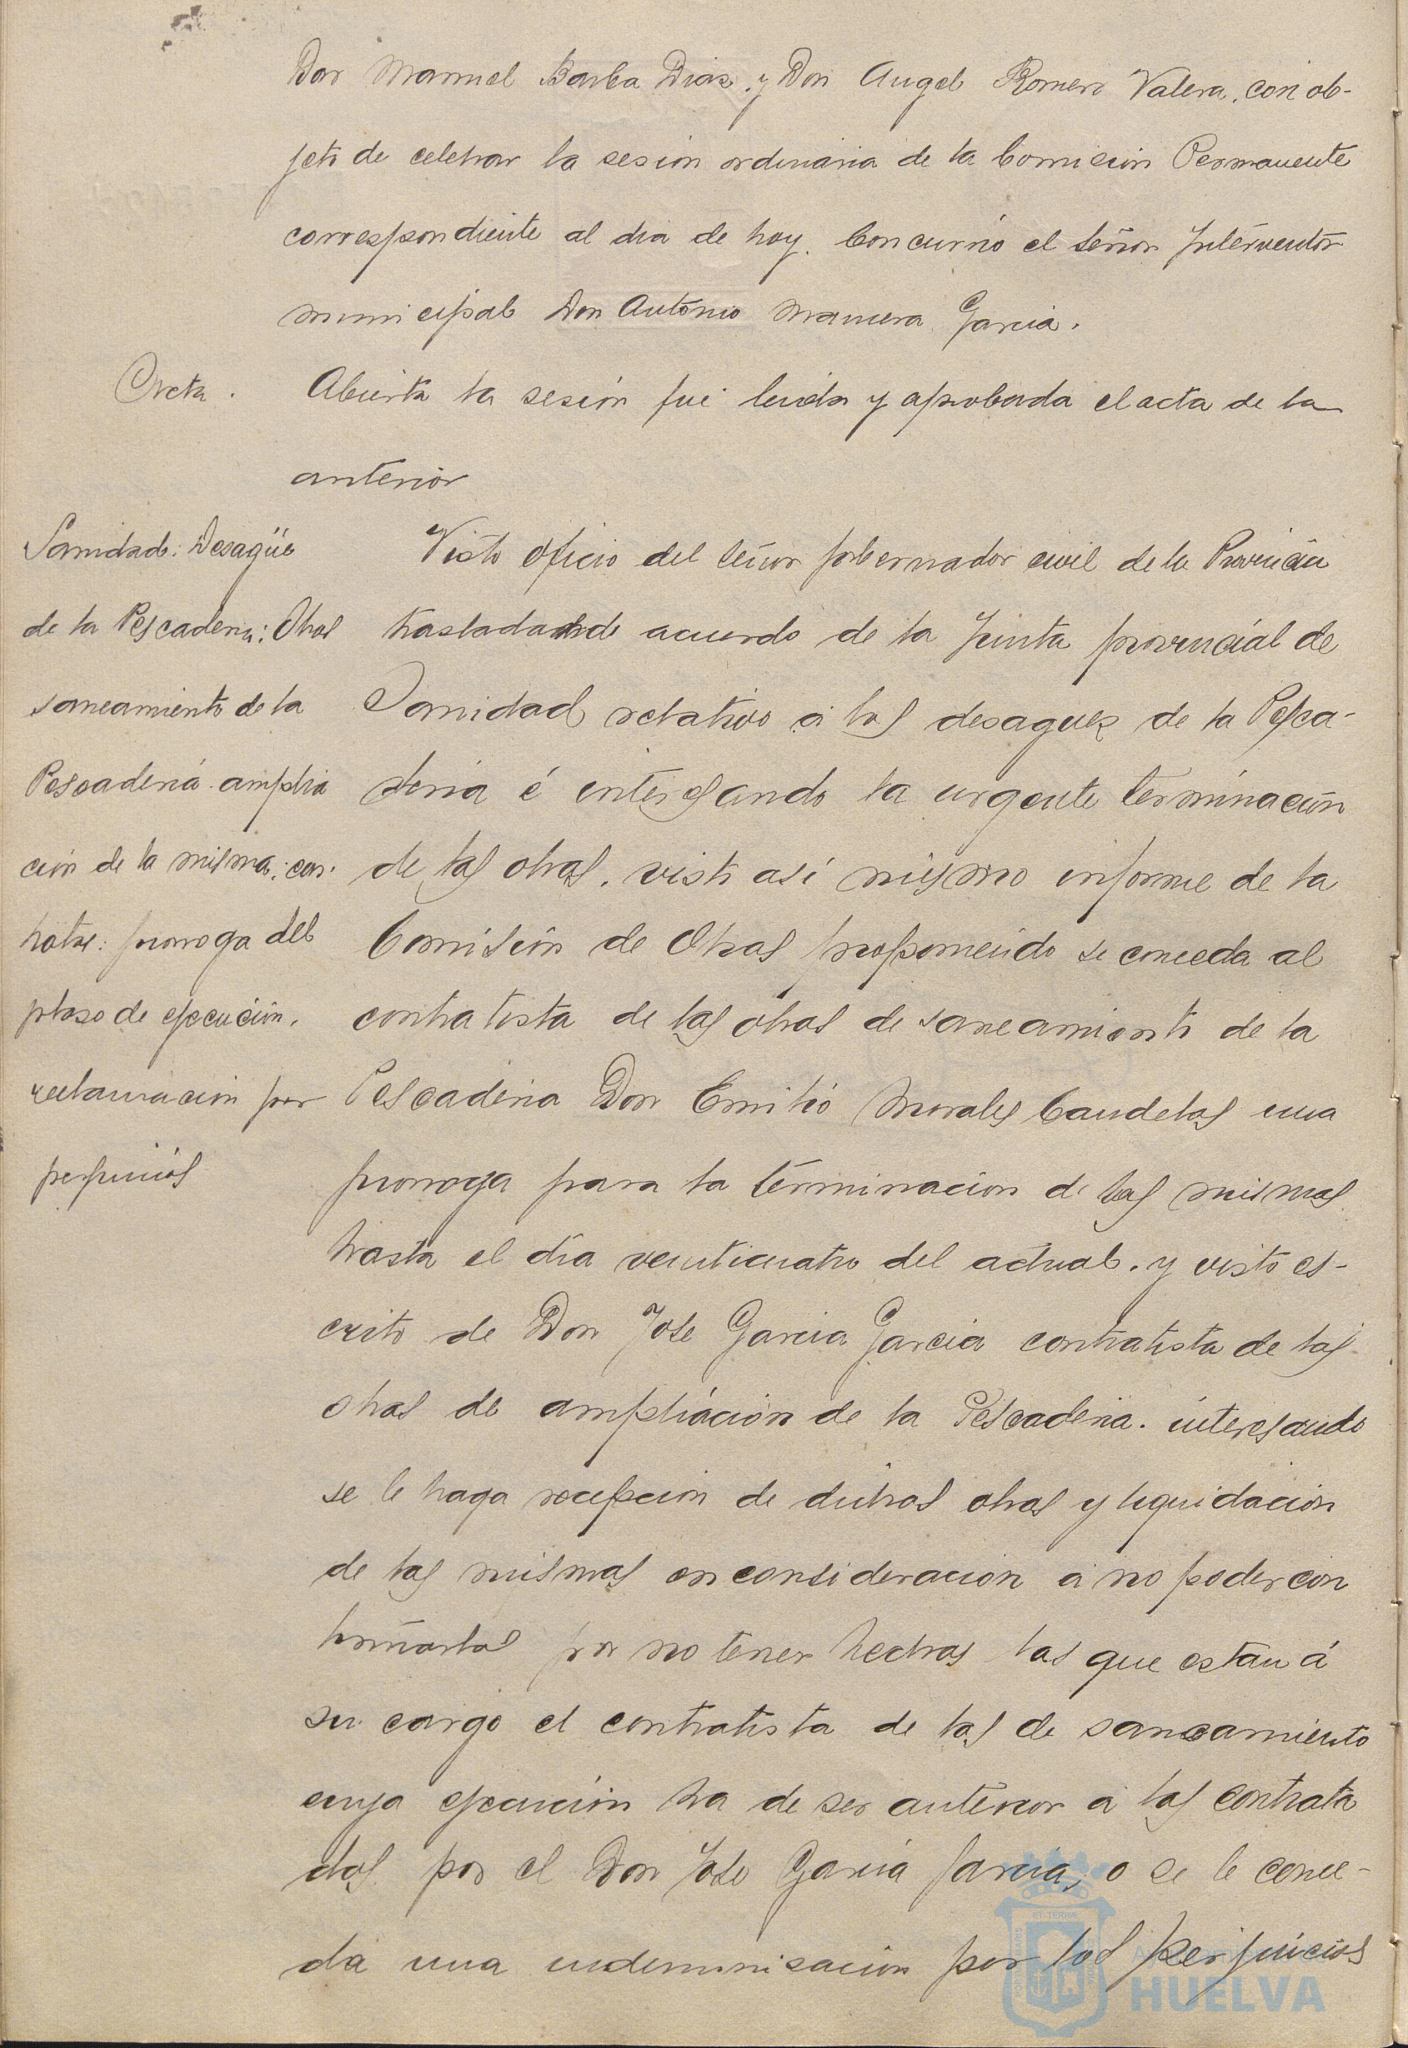 Don Manuel Barba Diaz, y Don Angel Romero Valera, con ob-
jeto de celebrar la sesion ordinaria de la Comision Permanente
correspondiente al dia de hoy. Concurrió el señor Interventor
municipal Don Antonio Mancera Garcia.
Acta.
Abierta la sesión fué leida y aprobada el acta de la
anterior
Sanidad: Desagüe
de la Pescaderia: Obras
saneamiento de la
Pescaderiá amplia
ción de la misma: con-
tratas: prorroga del
plazo de ejecución.
reclamacion por
perjuicios
Visto oficio del señor gobernador civil de la Provincia
trasladando acuerdo de la Junta provincial de
Sanidad relativo a los desagues de la Pesca-
deria é interesando la urgente terminación
de las obras, visto así mismo informe de la
Comisión de Obras proponiendo se conceda al
contratista de las obras de saneamiento de la
Pescaderia Don Emilio Morales Candelas una
prorroga para la terminacion de las mismas
hasta el día veinticuatro del actual. y visto es-
crito de Don Jose Garcia Garcia contratista de las
obras de ampliación de la Pescaderia. interesando
se le haga recepcion de dichas obras y liquidacion
de las mismas en consideracion a no poder con
tinuarlas por no tener hechas las que estan á
su cargo el contratista de las de saneamiento
cuya ejecución ha de ser anterior a las contrata
das por el Don Jose Garcia Garcia, o se le conce-
da una indemnisacion por los perjuicios
HUELVA